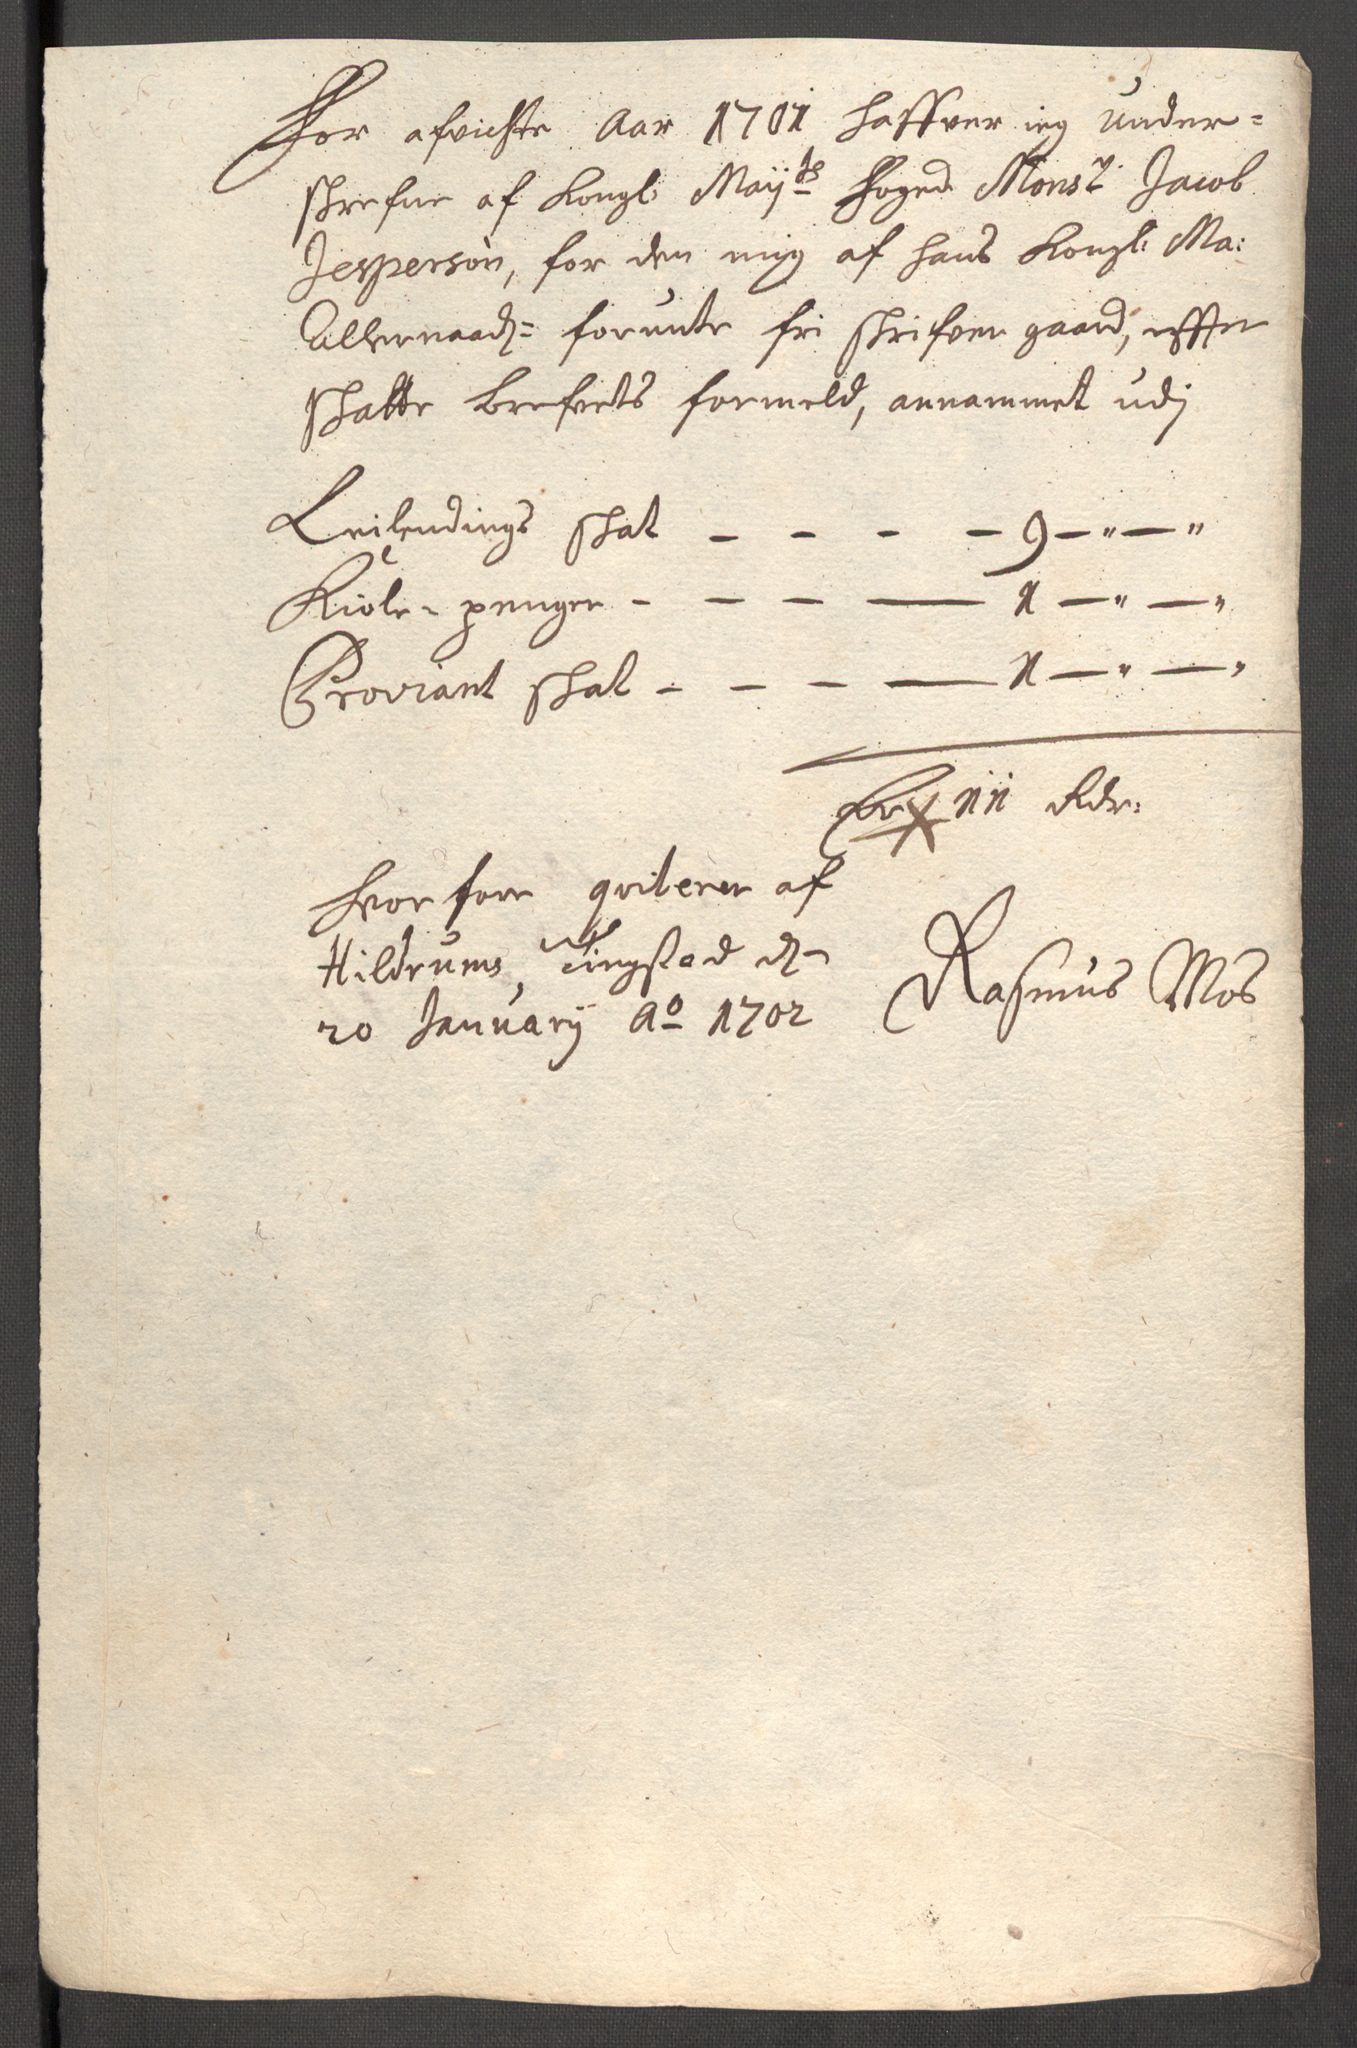 For afvichte Aar 1701 haffver ieg under=
skrefne af Kongl: Maij:ts foged Mons:r Jacob
Jesperson, for den mig af hans Kongl: Ma:
Allernaad:= forunte fri skrifver gaard, effter
skatte brefvets formeld, annammet udj
Leilendings skat - - - - 9 - " - "
Kiole- penger - - - - 1 - " - "
Proviant skat - - - - 1 - " - "
11 Rdr:
hvor fore qviterer af
Hildrums Tingsted d:
20 Januarij Ao 1702
Rasmus Mos